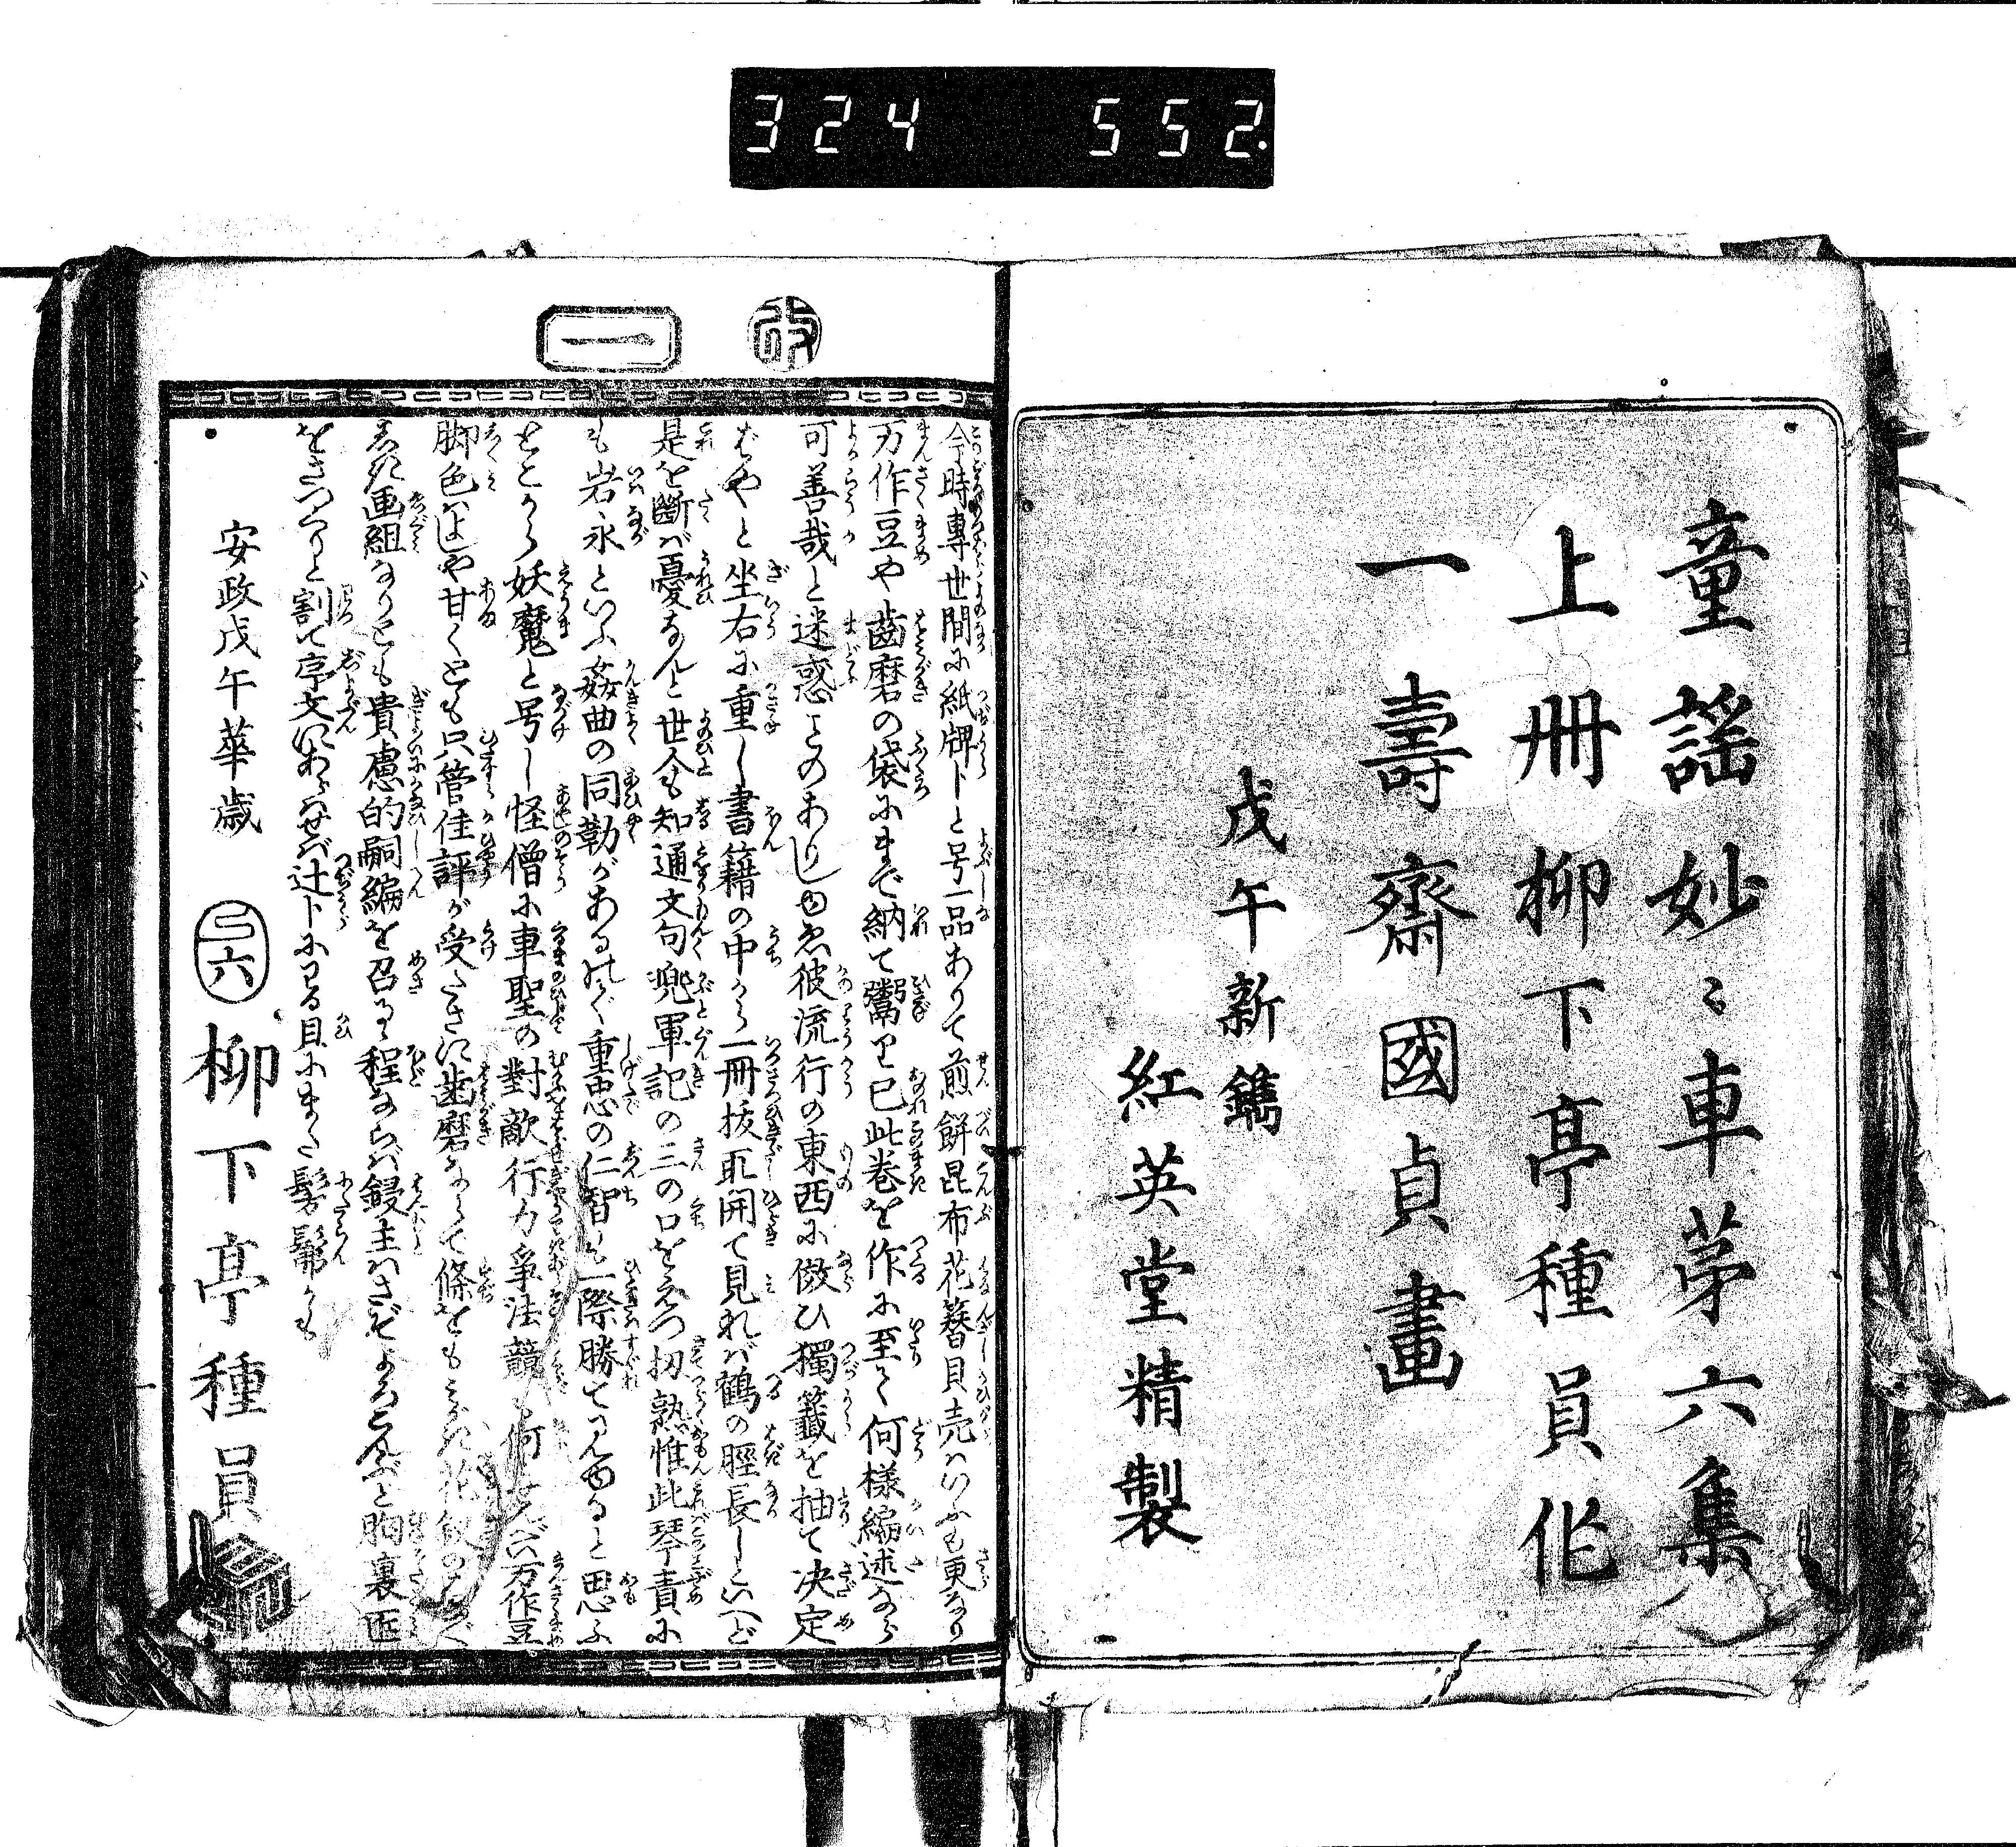 324 552
童謡妙〻車苐六集
上冊柳下亭種員作
一壽齋國貞畫
戊午新鐫
紅英堂精製
改
一
今時專世間に紙牌卜と号一品ありて煎餅昆布花簪貝売はいふも更なり
万作豆や齒磨の袋にまで納て鬻り已此卷を作に至て何様編述なら
可善哉と迷惑とのあじしゆゑ彼流行の東西に倣ひ獨籤を抽て决定
ばやと坐右に重し書籍の中から一冊抜取開て見れば鶴の脛長しといへど
是を斷ば憂なんと世人も知通文句兜軍記の三の口をえつ扨熟惟此琴責に
も岩永といふ姦曲の同勤があるので重忠の仁智も一際勝てみゆると思ふ
とこから妖魔と号し怪僧に車聖の對敵行力爭法競も何せんべい万作豆
脚色はよしや甘くとも只管佳評が受たさに歯磨ならで條をもみがき花簪の
画組なりとも貴慮的嗣編を召る程ならば鋟主はさぞよろこんぶと胸裏匠
をさつくりと割て序文にあらはせば辻卜にはる貝にまた髣髴かも
安政戊午華歳
六
柳下亭種員